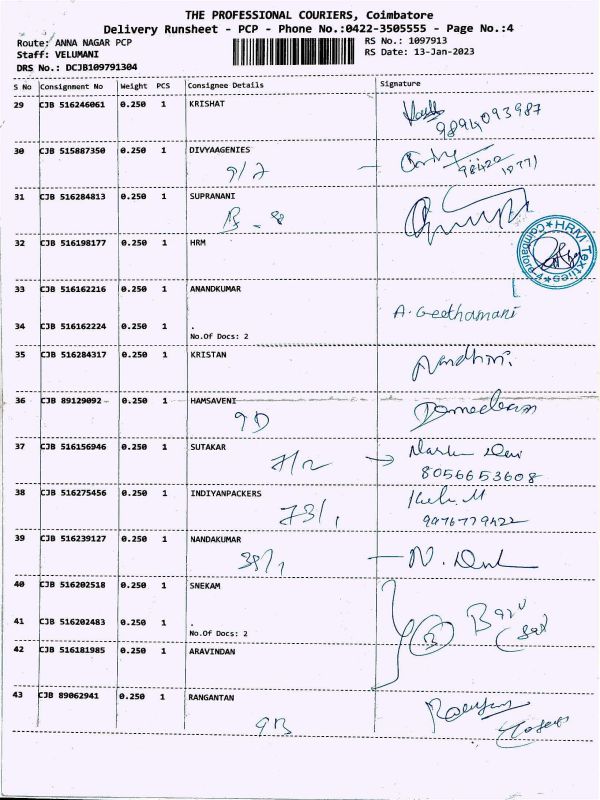 THE PROFESSIONAL COURIERS, Coimbatore
Delivery Runsheet - PCP - Phone No.:0422-3505555 - Page No.:4
Route: ANNA NAGAR PCP
RS No.: 1097913
Staff: VELUMANI
RS Date: 13-Jan-2023
DRS No.: DCJB109791304
S No Consignment No Weight PCS Consignee Details Signature
29 CJB 516246061 0.250 1 KRISHAT
9894093987
30 CJB 515887350 0.250 1 DIVYAAGENIES
9/7 -
31 CJB 516284813 0.250 1 SUPRANANI
B - 8
32 CJB 516198177 0.250 1 HRM
HRM Textiles Coimbatore
33 CJB 516162216 0.250 1 ANANDKUMAR
A. Geethamani
34 CJB 516162224 0.250 1 .
No.Of Docs: 2
35 CJB 516284317 0.250 1 KRISTAN
Nandhini.
36 CJB 89129092 0.250 1 HAMSAVENI
9D
37 CJB 516156946 0.250 1 SUTAKAR
7/2 →
8056653608
38 CJB 516275456 0.250 1 INDIYANPACKERS
73/1
9976779422
39 CJB 516239127 0.250 1 NANDAKUMAR
38/1
40 CJB 516202518 0.250 1 SNEKAM
41 CJB 516202483 0.250 1 .
No.Of Docs: 2
42 CJB 516181985 0.250 1 ARAVINDAN
43 CJB 89062941 0.250 1 RANGANTAN
9B